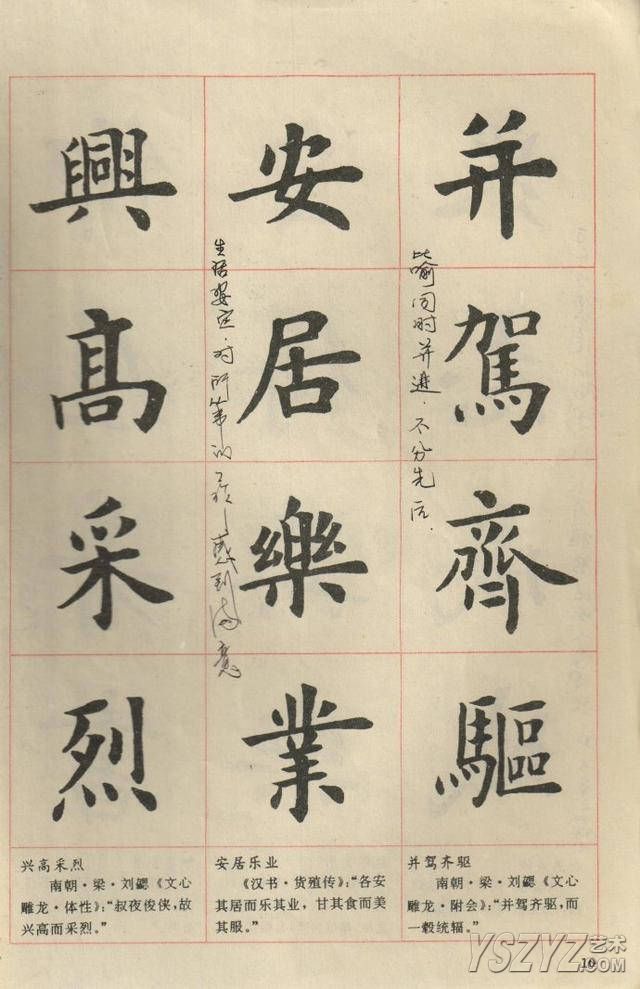 并駕齊驅
比喻同时并进．不分先后．
安居樂業
生活安定．对所从事的
感到满意
興高采烈
并驾齐驱
南朝·梁·刘勰《文心
雕龙·附会》：“并驾齐驱，而
一毂统辐。”
安居乐业
《汉书·货殖传》：“各安
其居而乐其业，甘其食而美
其服。”
兴高采烈
南朝·梁·刘勰《文心
雕龙·体性》：“叔夜俊侠，故
兴高而采烈。”
10
YSZYZ艺术
.COM